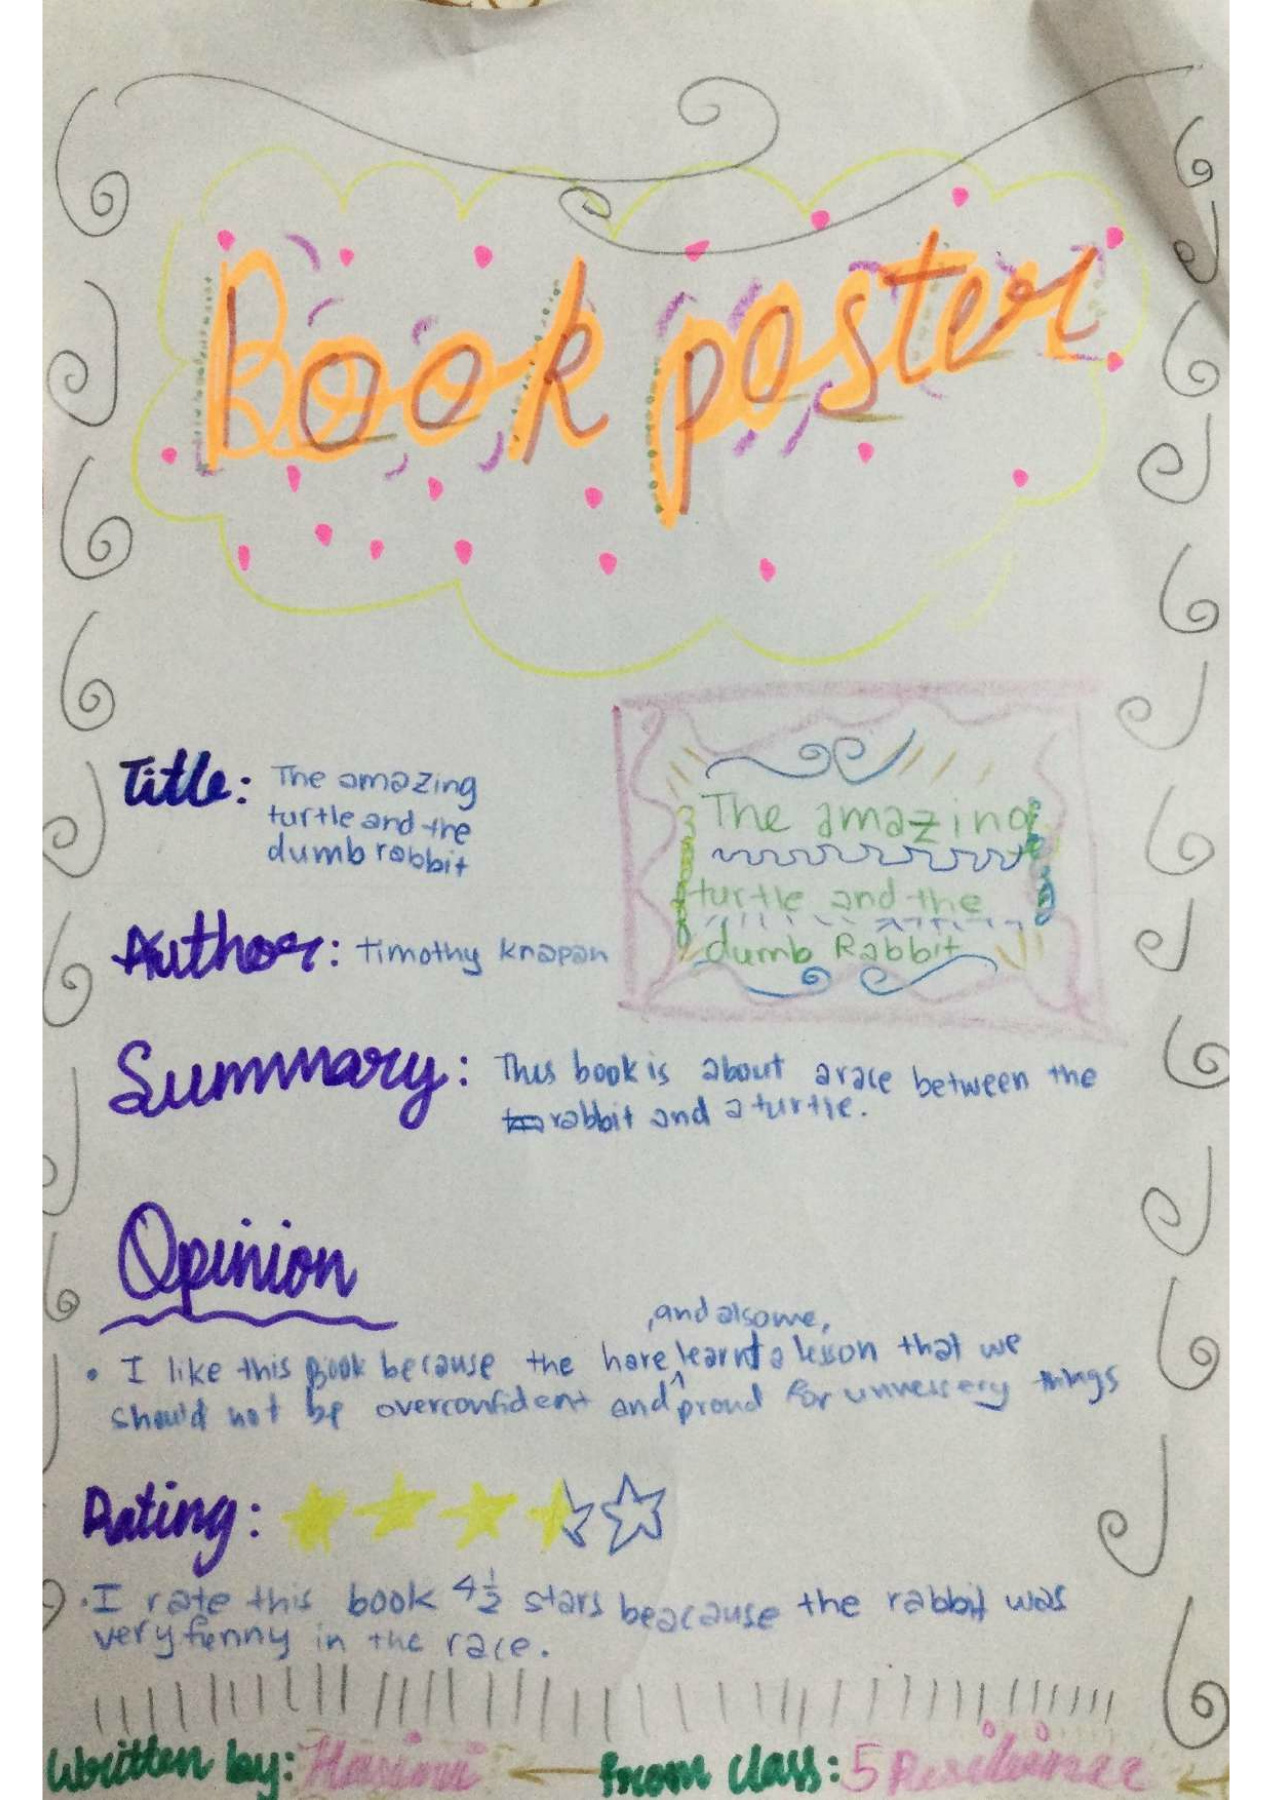 Book poster
Title: The amazing
turtle and the
dumb rabbit
The amazing
turtle and the
dumb Rabbit
Author: Timothy knapan
Summary: This book is about a race between the
rabbit and a turtle.
Opinion
, and also me,
• I like this Book because the hare learnt a lesson that we
should not be overconfident and proud for unnessery things
Rating:
• I rate this book 4½ stars beacause the rabbit was
very funny in the race.
Written by: Hasini from class: 5 Resilience